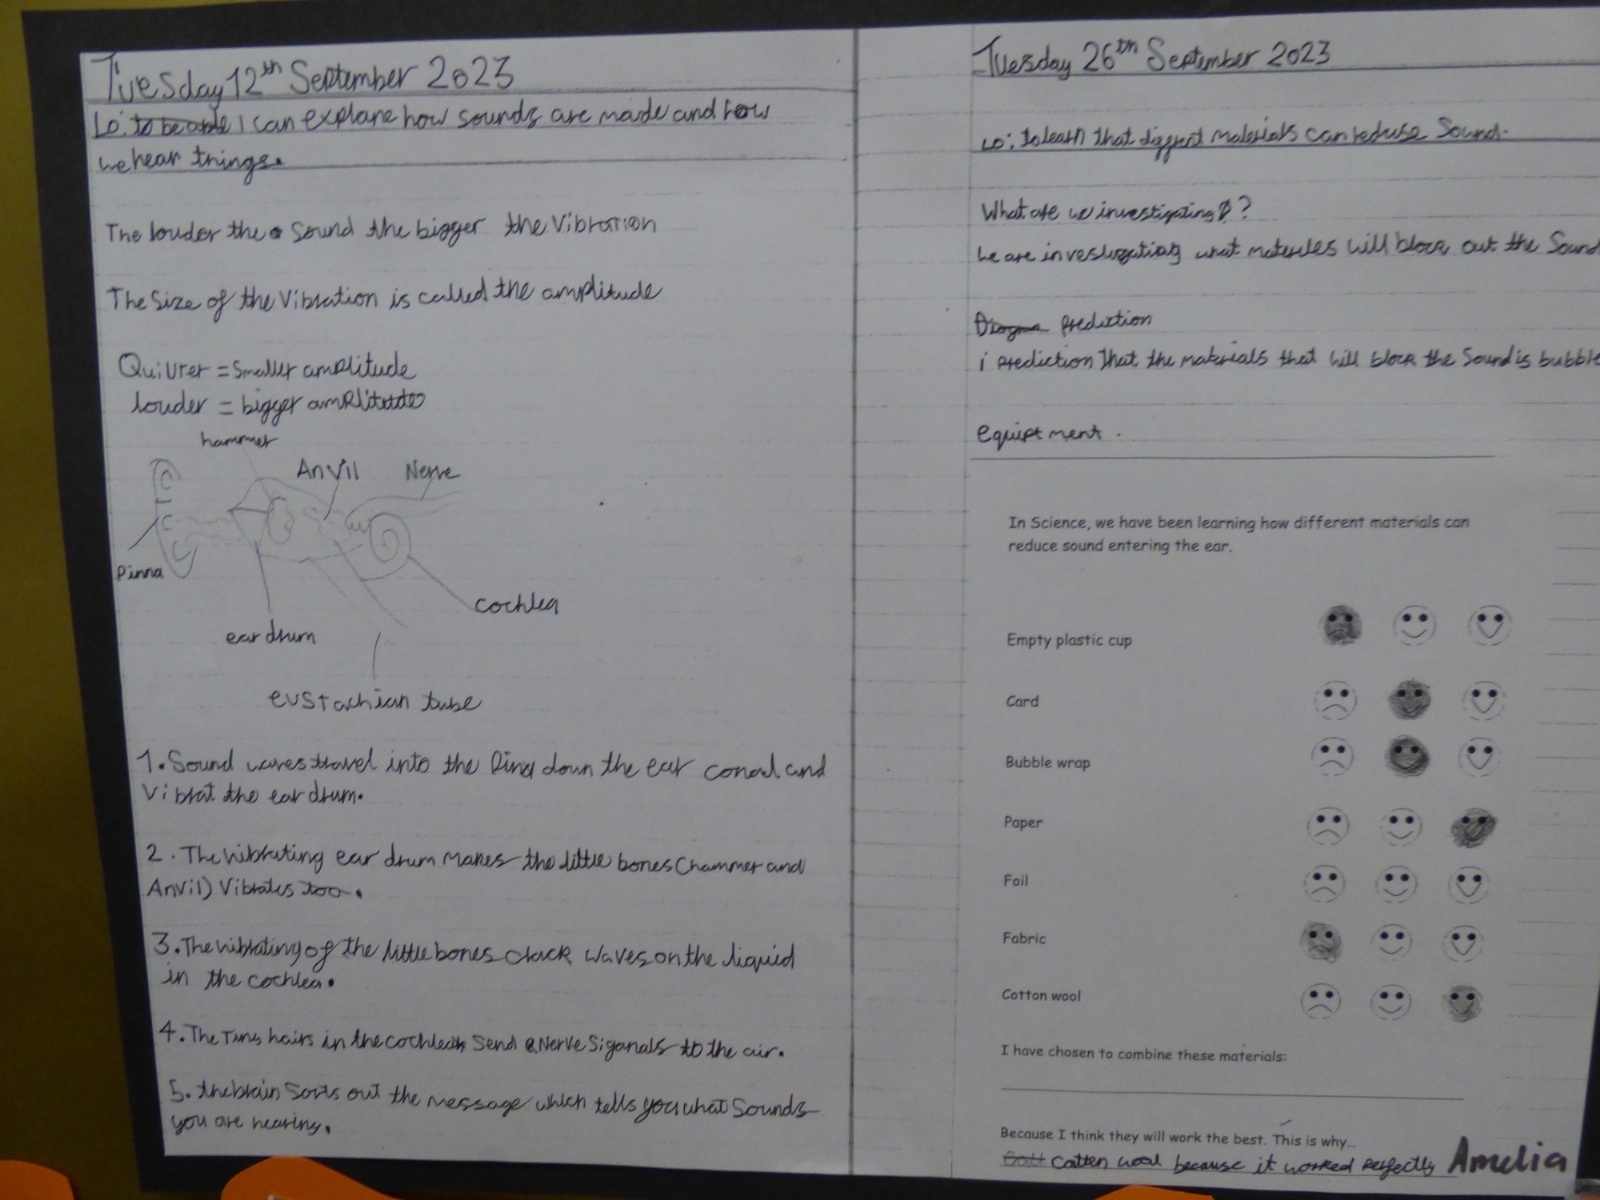 Tuesday 12th September 2023
Lo: to be able I can explane how sounds are made and how
we hear things.
The louder the sound the bigger the vibration
The size of the vibration is called the amplitude
Quiuter = smaller amplitude
louder = bigger amplitude
hammer
Anvil
Nerve
Pinna
ear drum
cochlea
eustachian tube
1. Sound waves travel into the Pina down the ear conal and
vibrat the ear drum.
2. The vibrating ear drum makes the little bones (hammer and
Anvil) vibrates too.
3. The vibrating of the little bones waves on the liquid
in the cochlea.
4. The hairs in the cochlea send Nerve Siganals to the air.
5. the brain sorts out the message which tells you what sounds
you are hearing.
Tuesday 26th September 2023
Lo: to learn that different materials can reduse sound.
What are we investigating?
we are investigating what will block out the sound
Diagram prediction
i prediction that the materials that will block the sound is bubble
equiptment.
In Science, we have been learning how different materials can
reduce sound entering the ear.
Empty plastic cup
Card
Bubble wrap
Paper
Foil
Fabric
Cotton wool
I have chosen to combine these materials:
Because I think they will work the best. This is why...
cotten wool because it worked perfectly Amelia